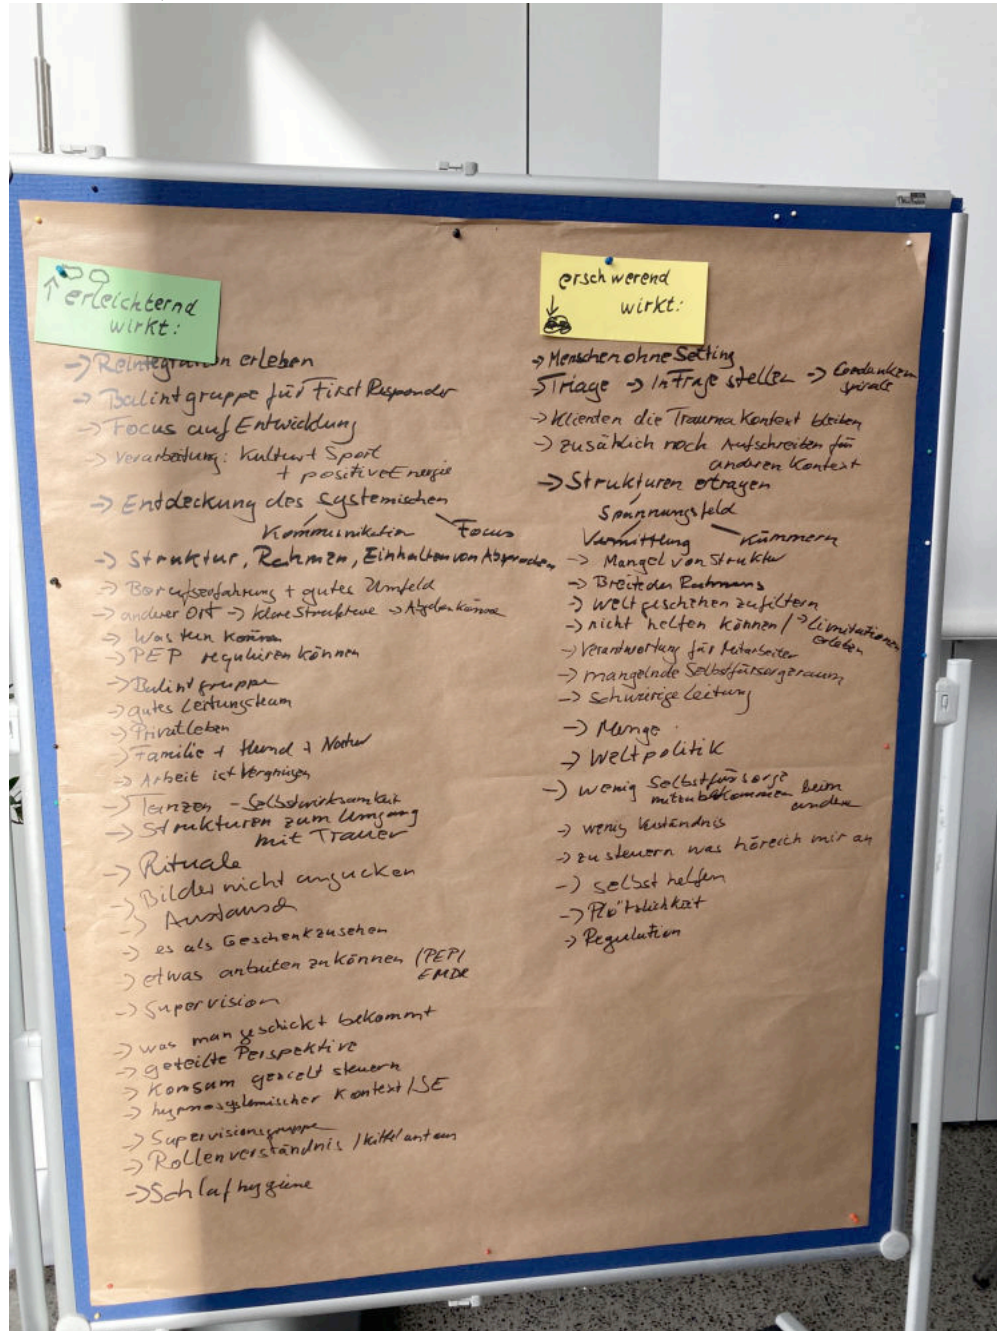 erleichternd
wirkt:
-> Reintegration erleben
-> Balintgruppe für First Responder
-> Focus auf Entwicklung
-> Verarbeitung: Kultur + Sport
+ positive Energie
-> Entdeckung des systemischen
Kommunikation Focus
-> Struktur, Rahmen, Einhalten von Absprachen
-> Berufserfahrung + gutes Umfeld
-> anderer Ort -> klare Strukture ->
-> Was tun können
-> PEP regulieren können
-> Balintgruppe
-> gutes Leitungsteam
-> Privatleben
-> Familie + Hund + Natur
-> Arbeit ist Vergnügen
-> Tanzen - Selbstwirksamkeit
-> Strukturen zum Umgang
mit Trauer
-> Rituale
-> Bilder nicht angucken
-> Austausch
-> es als Geschenk zusehen
-> etwas anbieten zu können (PEP/
EMDR
-> Supervision
-> was man geschickt bekommt
-> geteilte Perspektive
-> Konsum gezielt steuern
-> hypnosystemischer Kontext / SE
-> Supervisionsgruppe
-> Rollenverständnis /
-> Schlafhygiene
erschwerend
wirkt:
-> Menschen ohne Setting
-> Triage -> In Frage stellen -> Gedanken
spirale
-> Klienten die Trauma Kontext bleiben
-> zusählich noch Aufschreiben für
anderen Kontext
-> Strukturen ertragen
Spannungsfeld
Vermittlung Kümmern
-> Mangel von Struktur
-> Breite des Rahmens
-> Weltgeschehen zu filtern
-> nicht helfen können / -> Limitationen
erleben
-> Verantwortung für Mitarbeiter
-> mangelnde Selbstfürsorgeraum
-> schwierige Leitung
-> Menge
-> Weltpolitik
-> wenig Selbstfürsorge
mitzubekommen beim
andere
-> wenig Verständnis
-> zu steuern was höre ich mir an
-> selbst helfen
-> Plötzlichkeit
-> Regulation